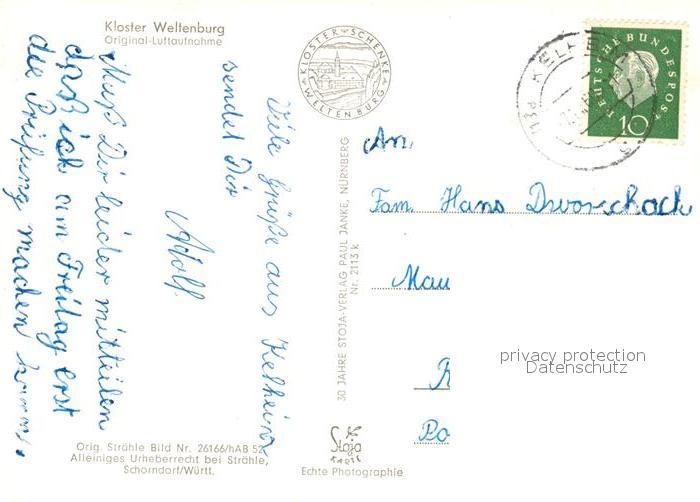 Kloster Weltenburg
Original-Luftaufnahme
KLOSTER-SCHENKE
WELTENBURG
Viele Grüße aus Kelheim
sendet Dir
Adolf.
Muß Dir leider mitteilen
daß ich am Freitag erst
die Prüfung machen kann.
30 JAHRE STOJA-VERLAG PAUL JANKE, NÜRNBERG
Nr. 2113 k
KELHEIM
DEUTSCHE BUNDESPOST
10
An
Fam. Hans Dworschack
Mau
R
Po
privacy protection
Datenschutz
Orig. Strähle Bild Nr. 26166/hAB 52
Alleiniges Urheberrecht bei Strähle,
Schorndorf/Württ.
Stoja
KARTE
Echte Photographie